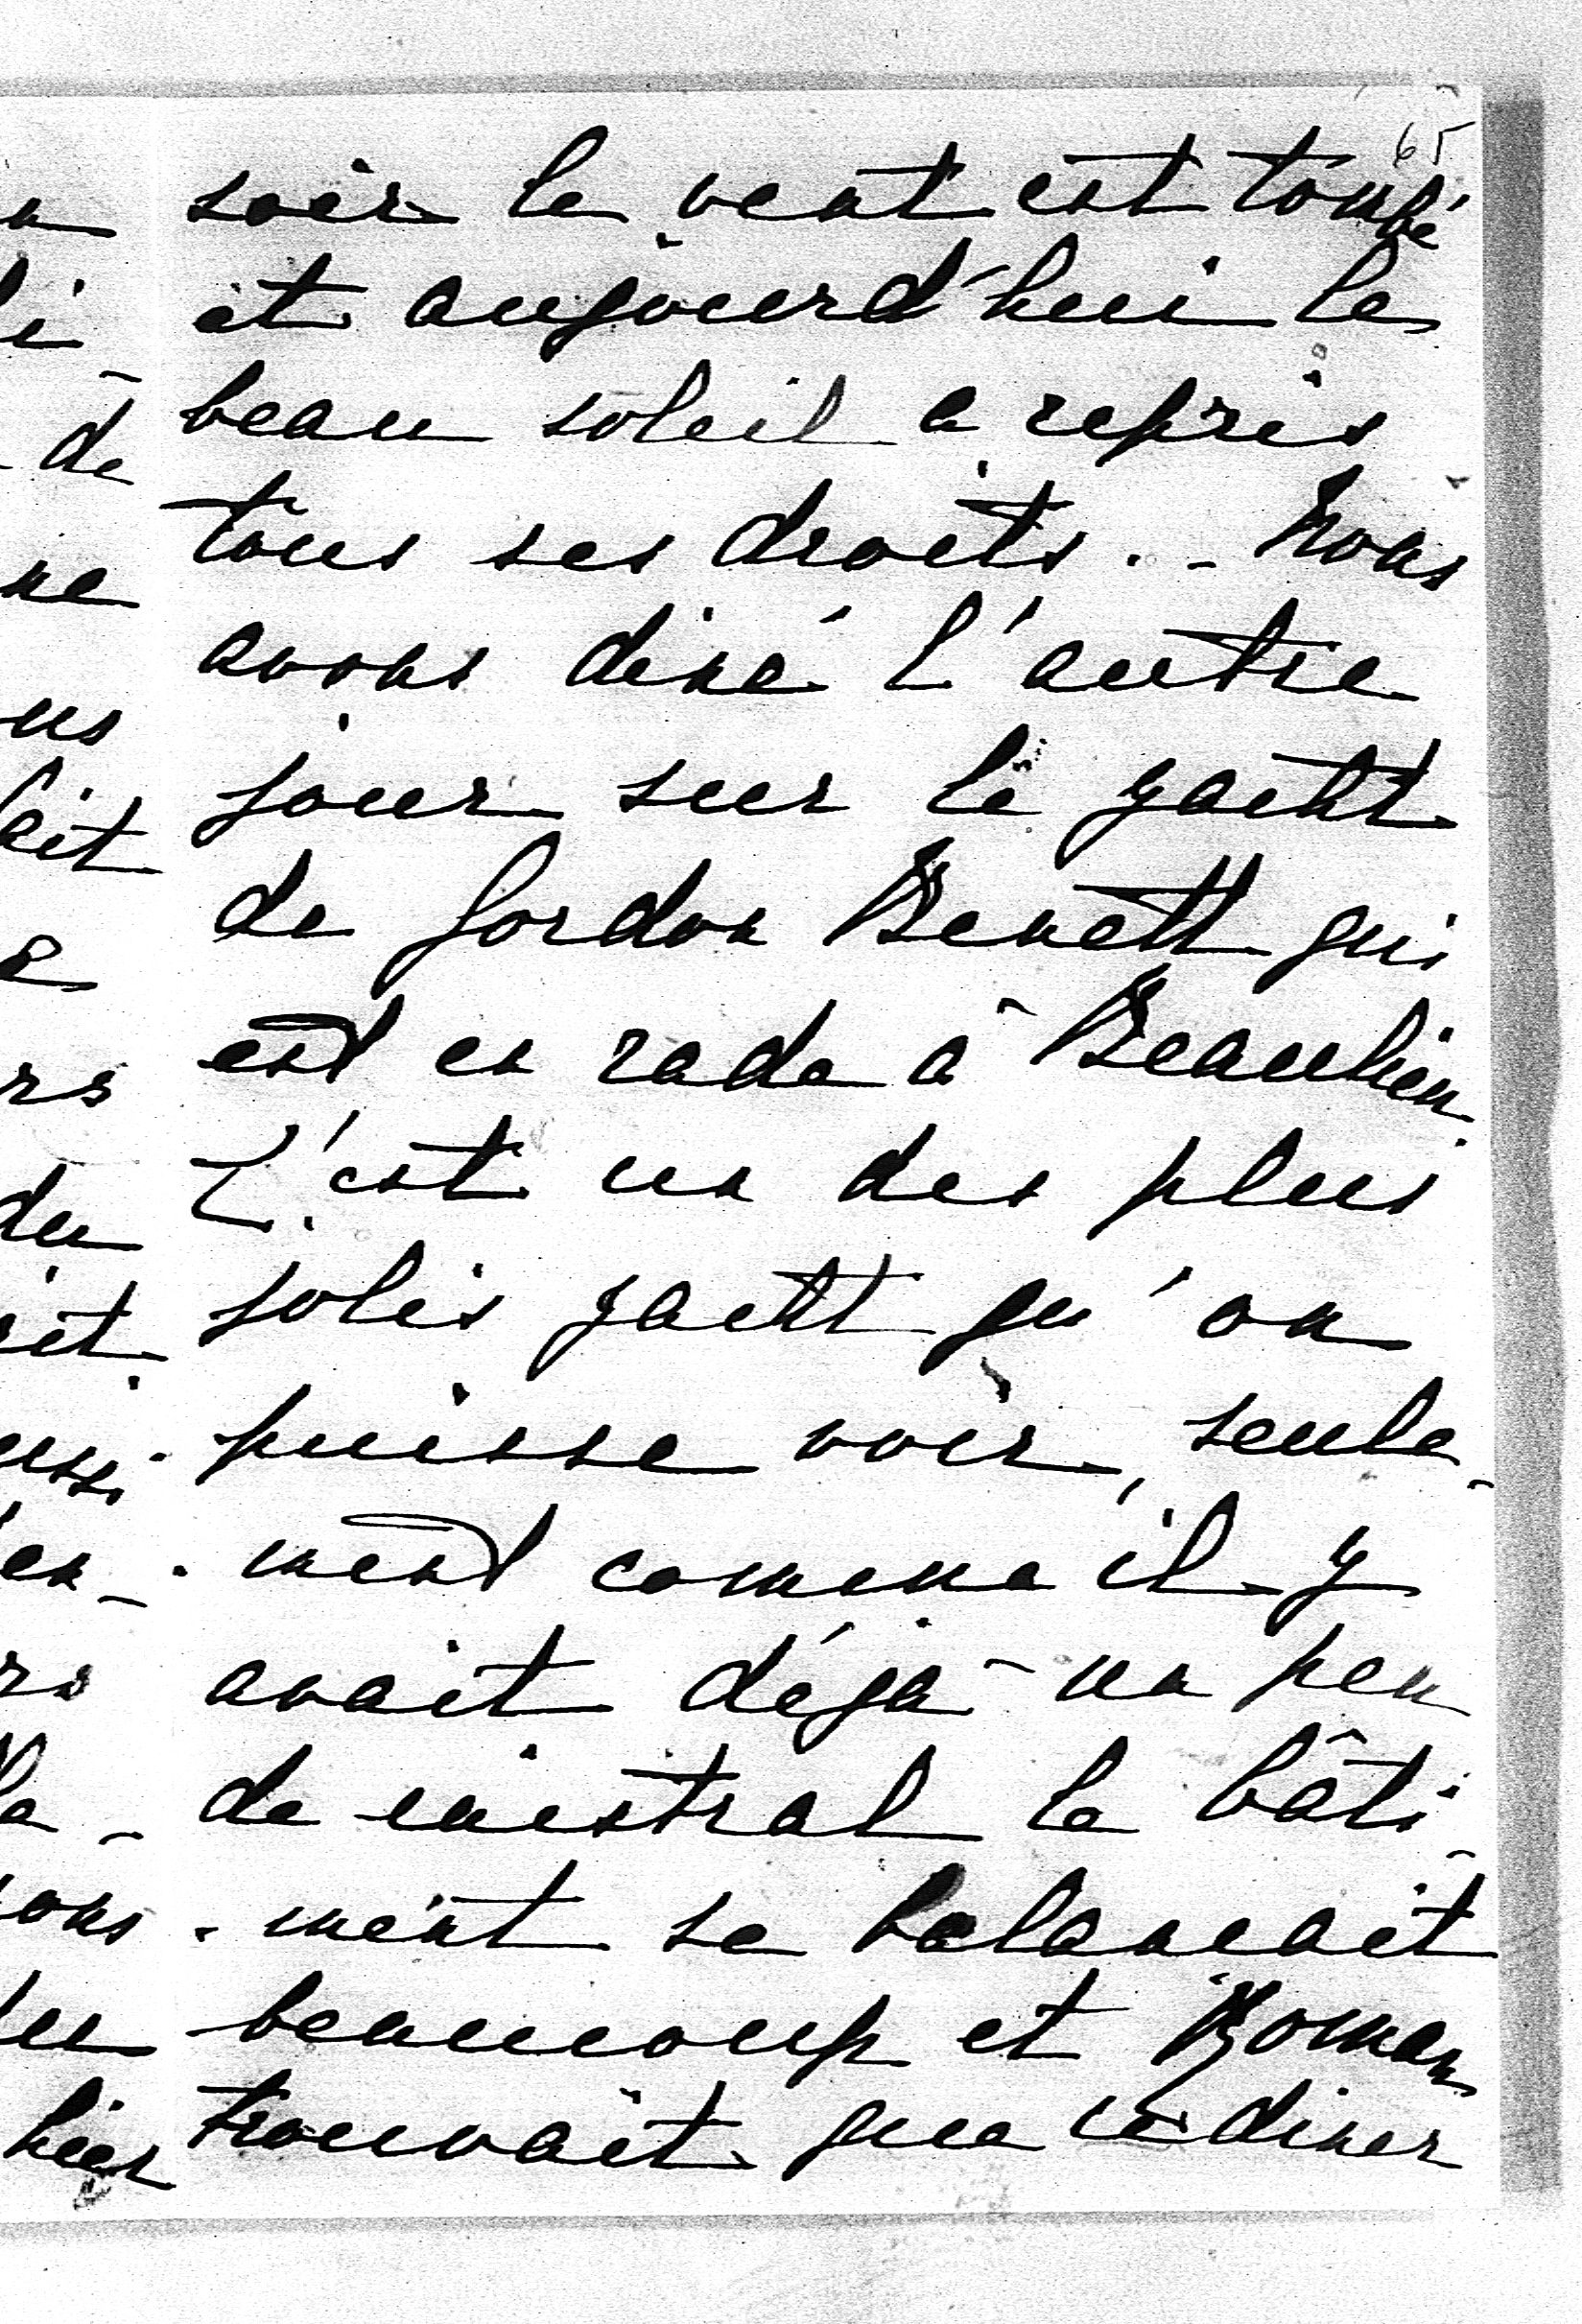 65
soir le vent est tombé
et aujourd'hui le
beau soleil a repris
tous ses droits. - Nous
avons diné l'autre
jour sur le yacht
de Gordon Benett qui
est en rade à Beaulieu.
C'est un des plus
jolis yacht qu'on
puisse voir, seule-
- ment comme il y
avait déjà un peu
de mistral le bâti-
- ment se balancait
beaucoup et Roman
trouvait que le diner